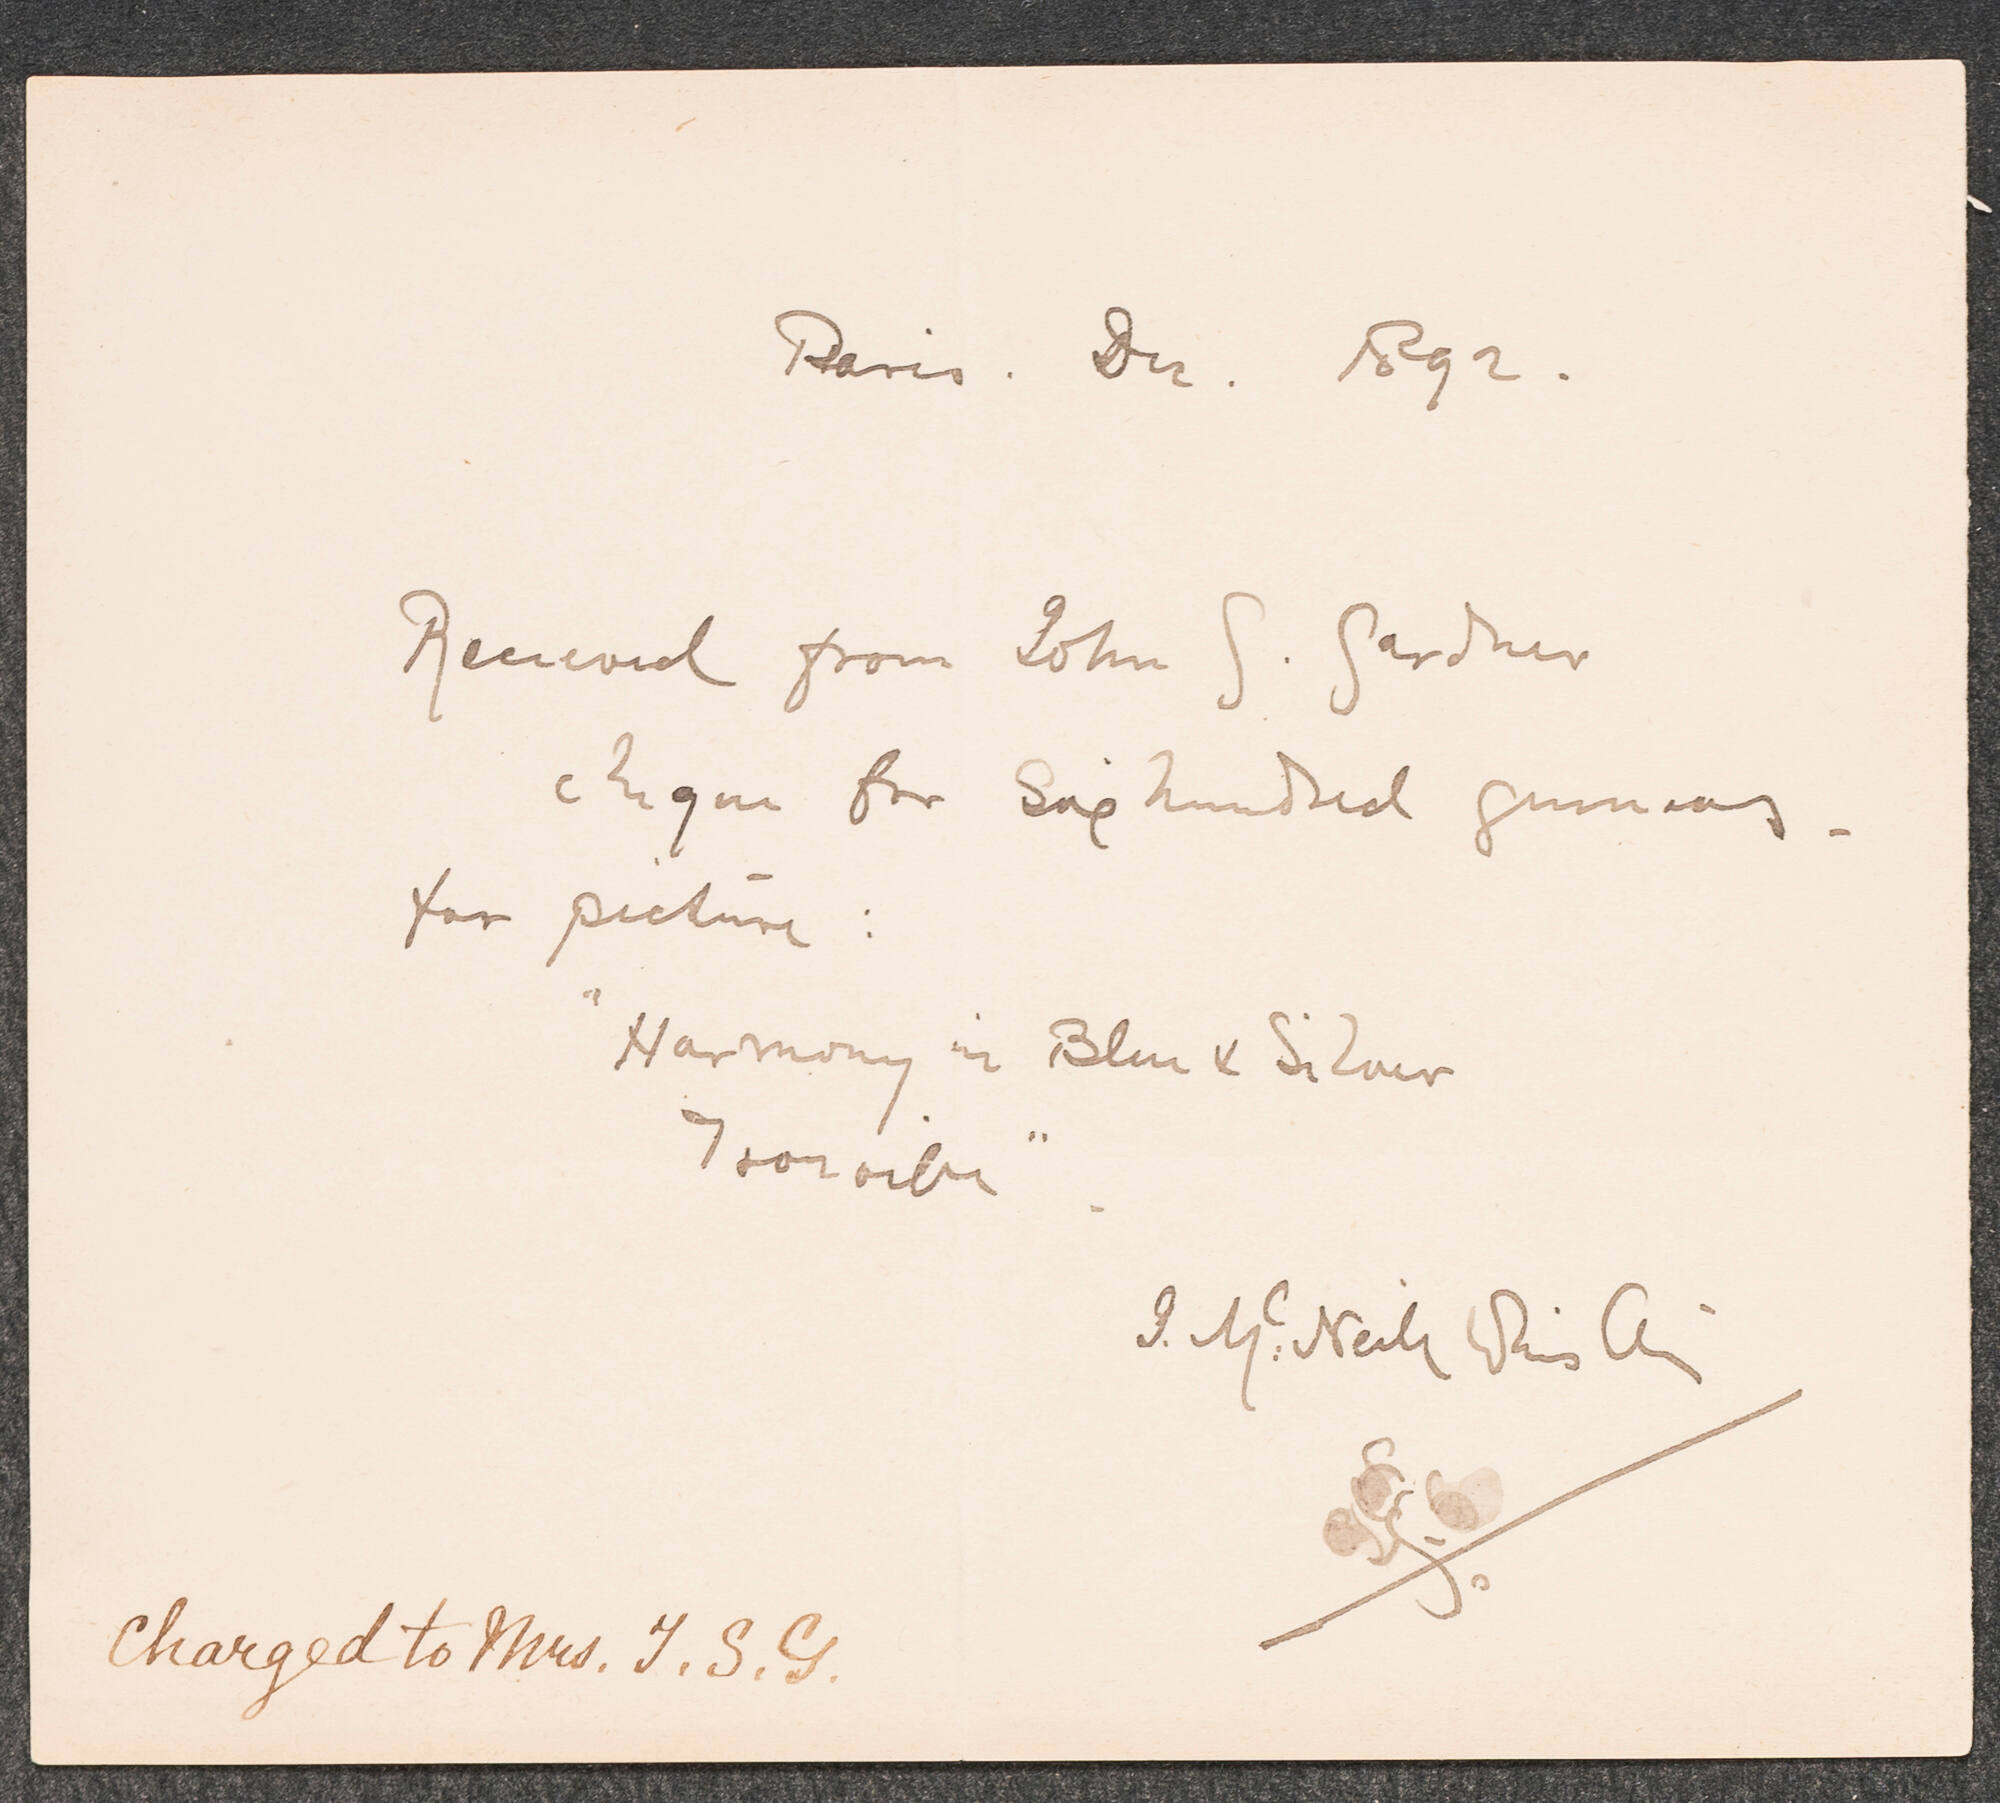 Paris. Dec. 1892.
Received from John G. Gardner
cheque for Six hundred guineas -
for picture :
"Harmony in Blue & Silver
Trouville".
J. McNeill Whistler
Charged to Mrs. I. S. G.